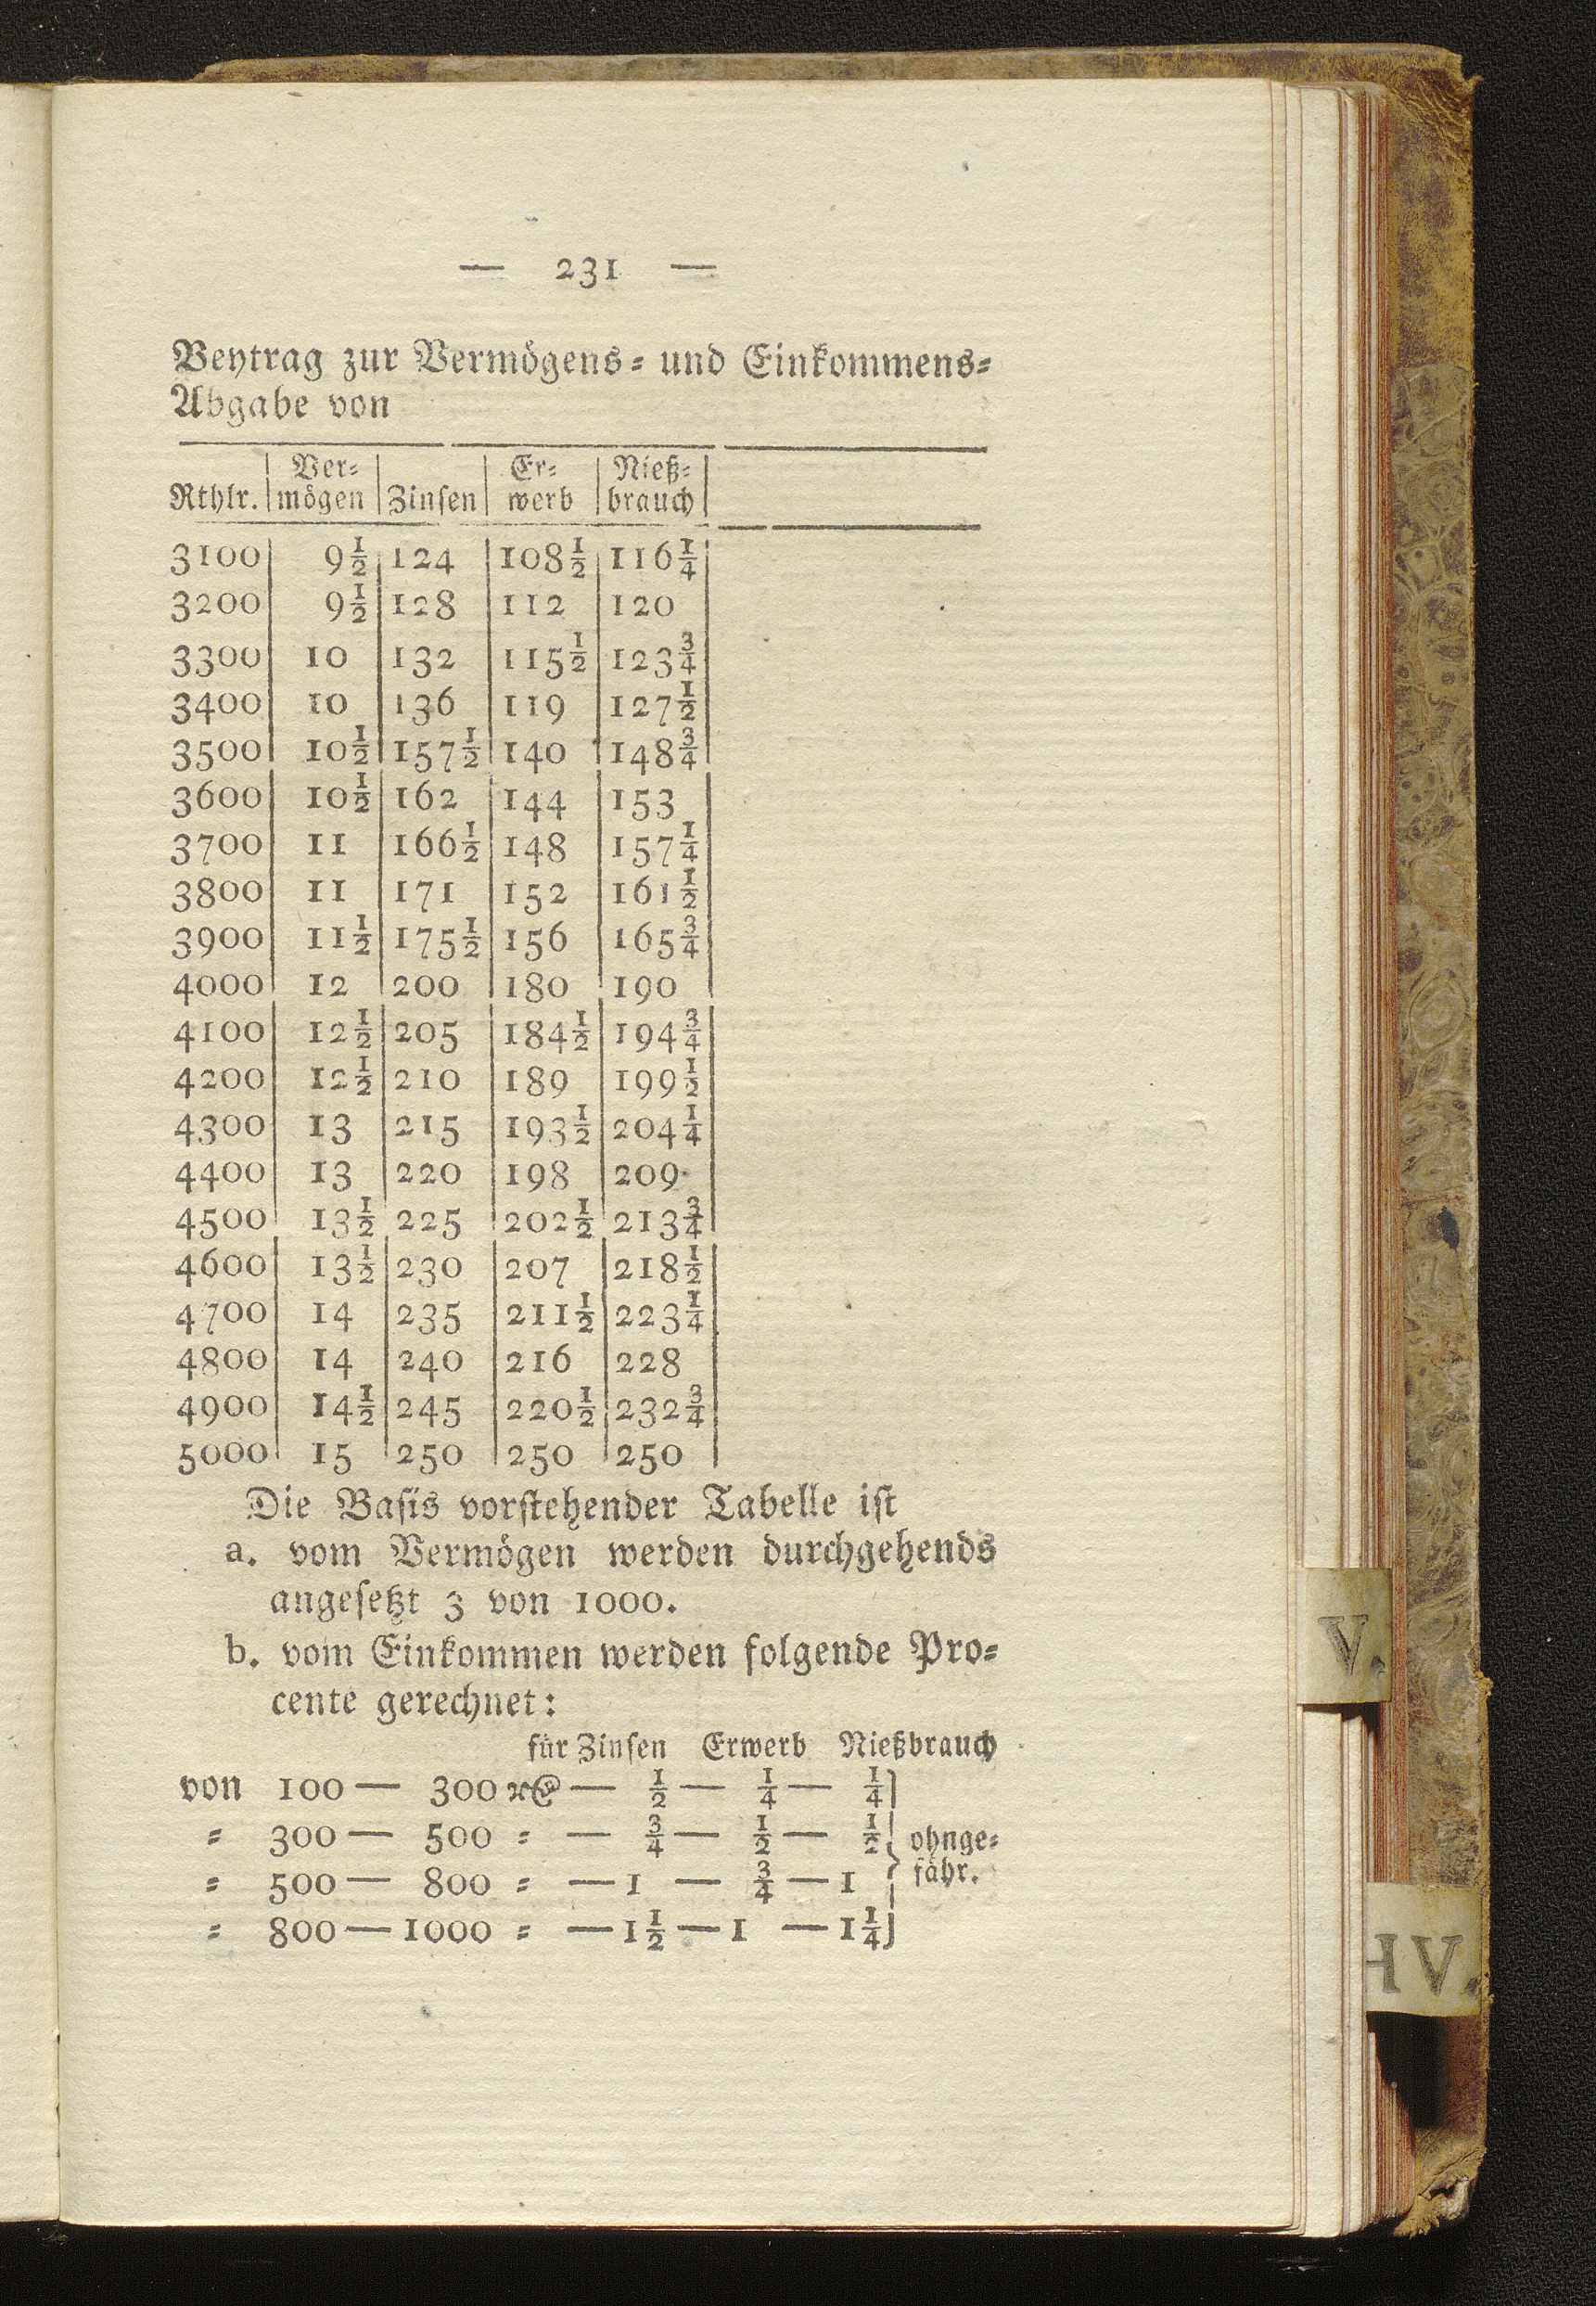 — 231 —
Beytrag zur Vermögens- und Einkommens-
Abgabe von
Ver- Er- Nieß-
Rthlr. mögen Zinsen werb brauch
3100 9½ 124 108½ 116¼
3200 9½ 128 112 120
3300 10 132 115½ 123¾
3400 10 136 119 127½
3500 10½ 157½ 140 148¾
3600 10½ 162 144 153
3700 11 166½ 148 157¼
3800 11 171 152 161½
3900 11½ 175½ 156 165¾
4000 12 200 180 190
4100 12½ 205 184½ 194¾
4200 12½ 210 189 199½
4300 13 215 193½ 204¼
4400 13 220 198 209
4500 13½ 225 202½ 213¾
4600 13½ 230 207 218½
4700 14 235 211½ 223¼
4800 14 240 216 228
4900 14½ 245 220½ 232¾
5000 15 250 250 250
Die Basis vorstehender Tabelle ist
a. vom Vermögen werden durchgehends
angesetzt 3 von 1000.
b. vom Einkommen werden folgende Pro-
cente gerechnet:
für Zinsen Erwerb Nießbrauch
von 100 — 300 — ½ — ¼ — ¼
= 300 — 500 = — ¾ — ½ — ½ ohnge-
= 500 — 800 = — 1 — ¾ — 1 fähr.
= 800 — 1000 = — 1½ — 1 — 1¼
V.
IV.